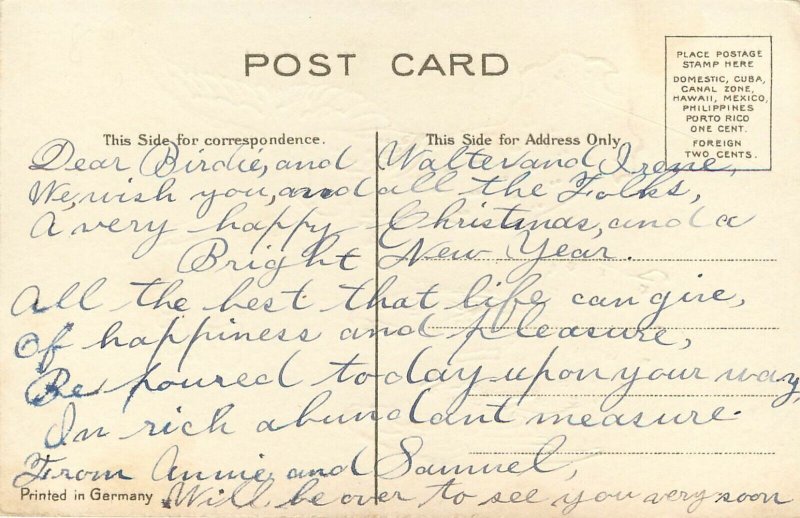 POST CARD
PLACE POSTAGE
STAMP HERE
DOMESTIC, CUBA,
CANAL ZONE,
HAWAII, MEXICO,
PHILIPPINES
PORTO RICO
ONE CENT.
FOREIGN
TWO CENTS.
This Side for correspondence.
This Side for Address Only
Dear Birdie, and Walter and Irene,
We, wish you, and all the Folks,
A very happy Christmas, and a
Bright New Year.
All the best that life can give,
Of happiness and pleasure,
Be poured today upon your way,
In rich abundant measure.
From Annie and Samuel,
Printed in Germany
Will be over to see you very soon